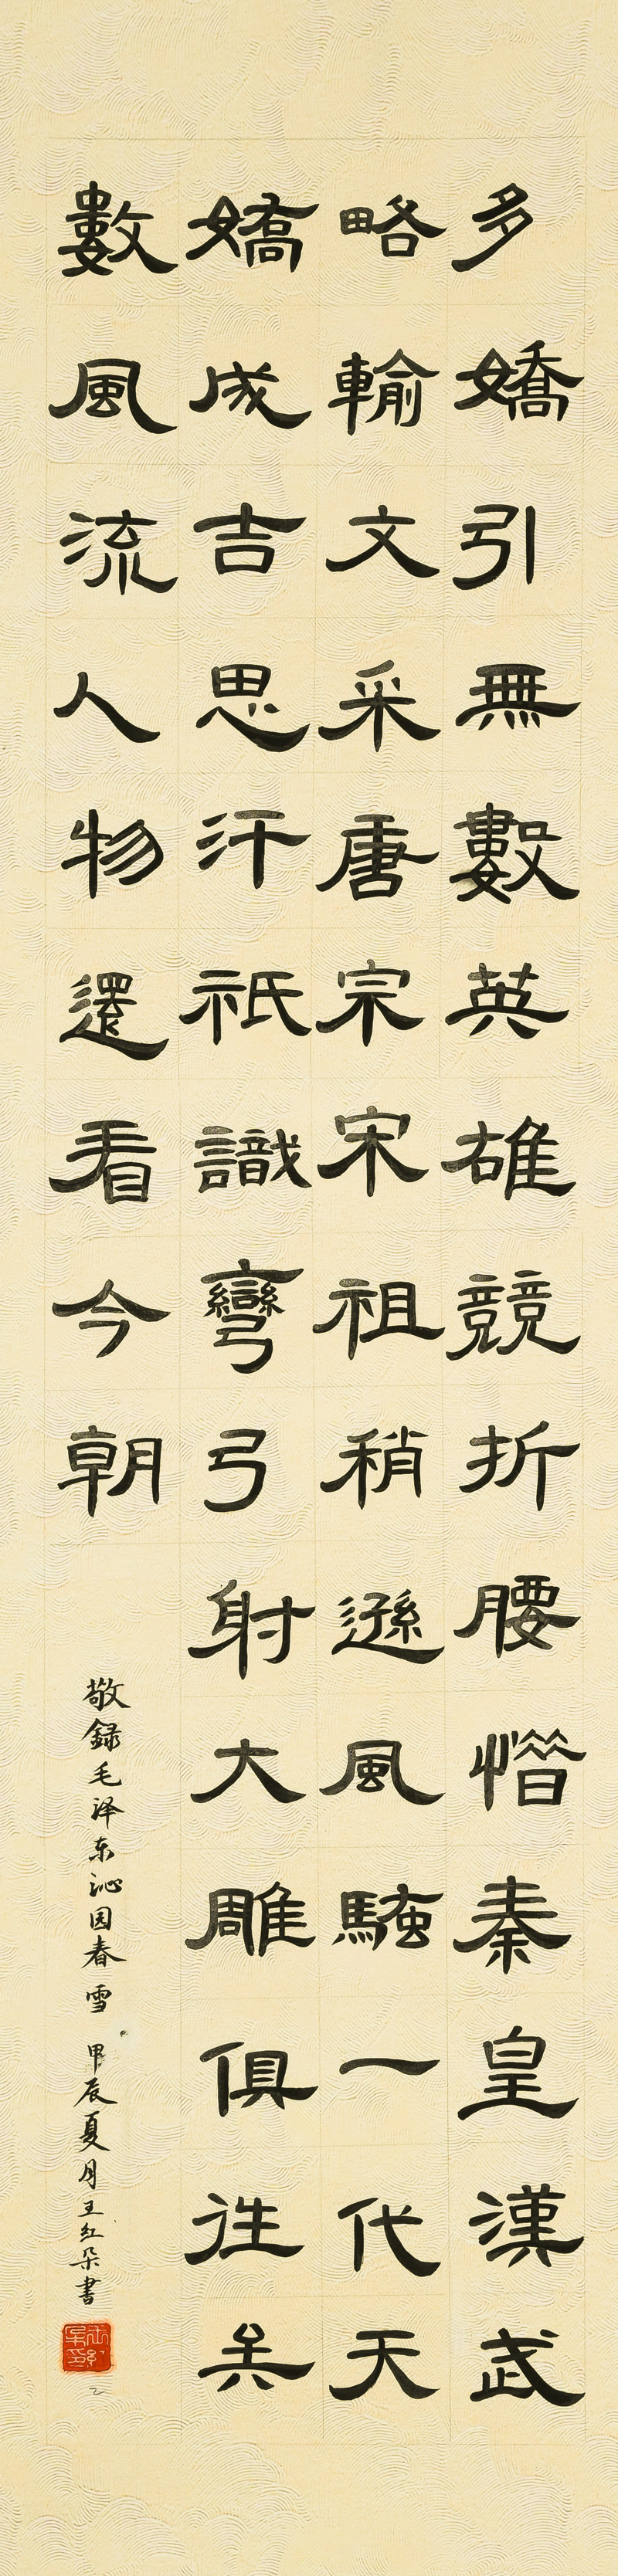 多嬌引無數英雄競折腰惜秦皇漢武
略輸文采唐宗宋祖稍遜風騷一代天
嬌成吉思汗祇識彎弓射大雕俱往矣
數風流人物還看今朝
敬録毛泽东沁园春雪 甲辰夏月王红朵書